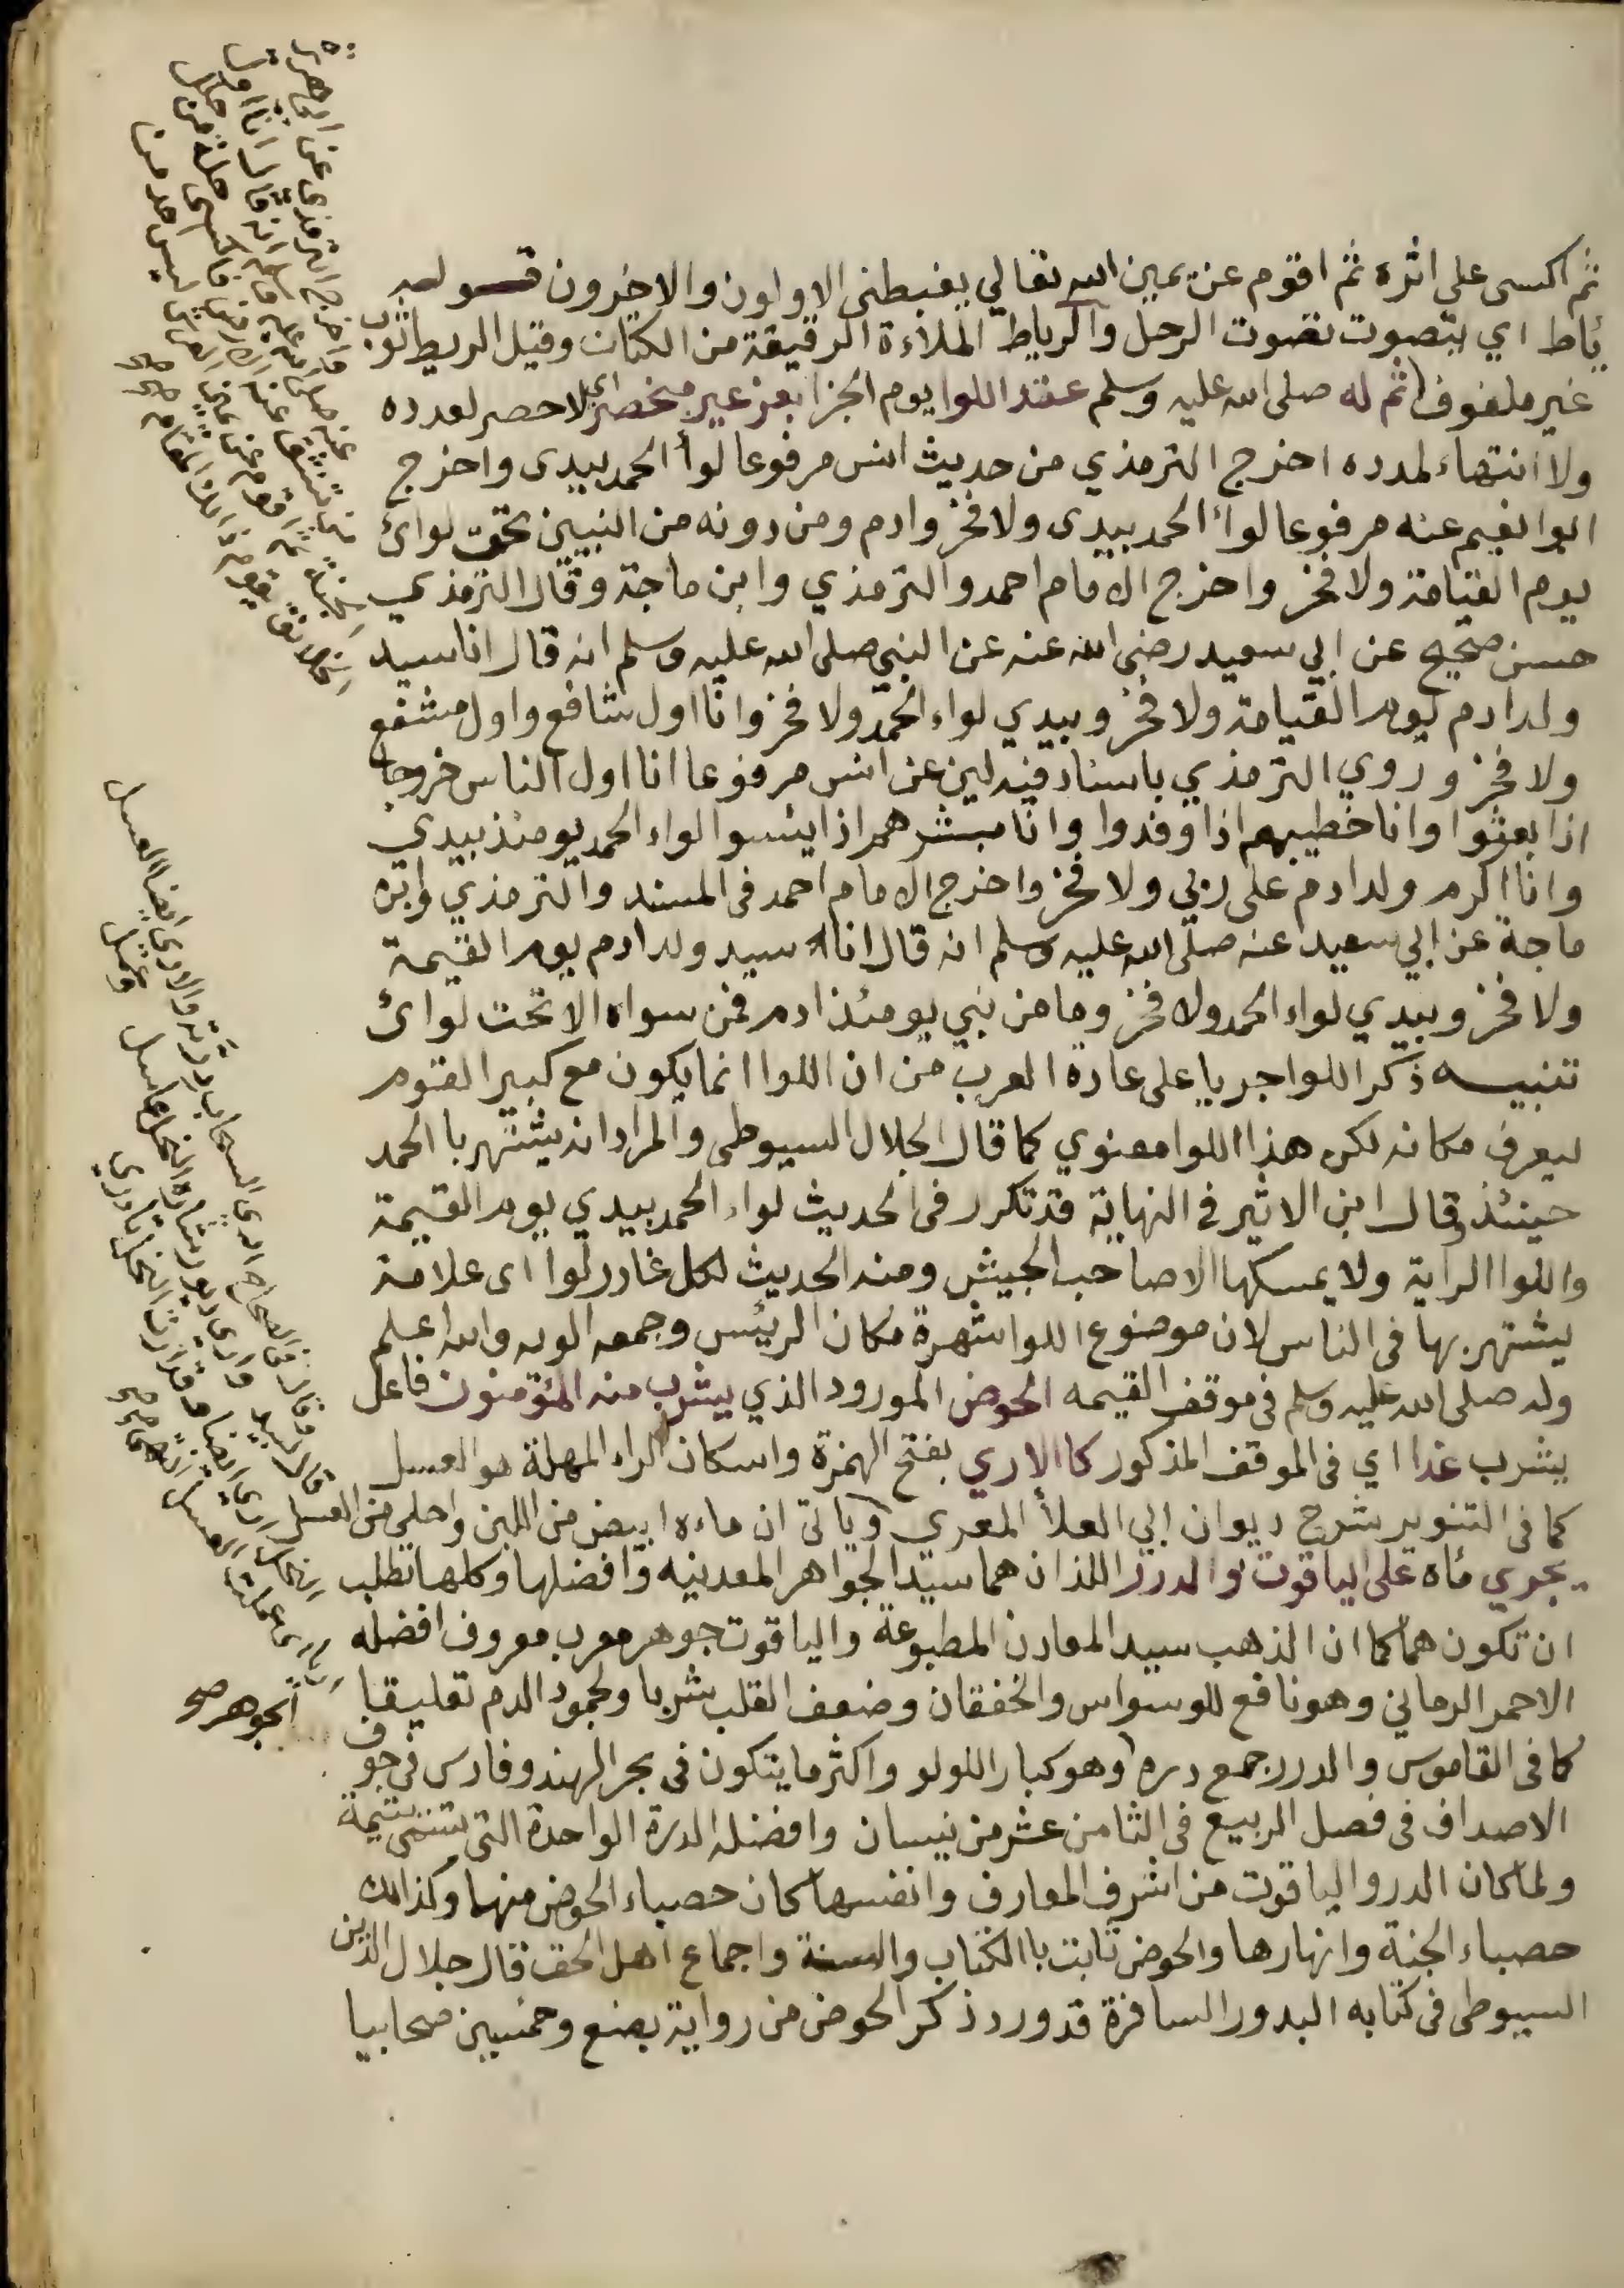 ثم اكسى على اثره ثم اقوم عن يمين الله تعالي يغبطنى الاولون والاخرون قوله
يأط اي يتصوت تصوت الرحل والرياط الملاءة الرقيقة من الكتان وقيل الريط ثوب
غير ملفوف ثم له صلى الله عليه وسلم عقد اللوا يوم الجزا بعز غير منحصر اي لا حصر لعدده
ولا انتهاء لمدده اخرج الترمذي من حديث انس مرفوعا لوأ الحمد بيدى واخرج
ابو انعيم عنه مرفوعا لواء الحمد بيدى ولا فخر وادم ومن دونه من النبيين تحت لوائ
يوم القيامة ولا فخر واخرج الامام احمد والترمذي وابن ماجة وقال الترمذي
حسن صحيح عن ابي سعيد رضى الله عنه عن النبي صلى الله عليه وسلم انه قال انا سيد
ولد ادم يوم القيامة ولا فخر وبيدي لواء الحمد ولا فخر وانا اول شافع واول مشفع
ولا فخر وروي الترمذي باسناد فيه لين عن انس مرفوعا انا اول الناس خروجا
اذا بعثوا وانا خطيبهم اذا وفدوا وانا مبشرهم اذا ايئسوا لواء الحمد يومئذ بيدي
وانا اكرم ولد ادم على ربي ولا فخر واخرج الامام احمد فى المسند والترمذي وابن
ماجة عن ابي سعيد عنه صلى الله عليه وسلم انه قال انا سيد ولد ادم يوم القيمة
ولا فخر وبيدي لواء الحمد ولا فخر وما من نبي يومئذ ادم فمن سواه الا تحت لوائ
تنبيه ذكر اللوا جريا على عادة العرب من ان اللوا انما يكون مع كبير القوم
ليعرف مكانه لكن هذا اللوا معنوي كما قال الجلال السيوطى والمراد انه يشتهر با الحمد
حينئذ وقال ابن الاثير فى النهاية قد تكرر فى الحديث لواء الحمد بيدي يوم القيمة
واللوا الراية ولا يمسكها الا صاحب الجيش ومنه الحديث لكل غادر لوا اى علامة
يشتهر بها فى الناس لان موضوع اللوا شهرة مكان الرئيس وجمعه الويه والله اعلم
وله صلى الله عليه وسلم فى موقف القيمه الحوض المورود الذي يشرب منه المؤمنون فاعل
يشرب غذا اي فى الموقف المذكور كا الاري بفتح الهمزة واسكان الراء المهملة هو العسل
كما فى التنوير شرح ديوان ابي العلأ المعري وياتى ان ماءه ابيض من اللبن واحلى من العسل
يجري مأه على الياقوت والدرر اللذان هما سيد الجواهر المعدنيه وافضلها وكلها تطلب
ان تكون هما كما ان الذهب سيد المعادن المطبوعة والياقوت جوهر معرب معروف افضله
الاحمر الرماني وهو نافع للوسواس والخفقان وضعف القلب شربا ولجمود الدم تعليقا
كما فى القاموس والدرر جمع دره وهو كبار اللولو واكثر ما يتكون فى بحر الهند وفارس فى جوف
الاصداف فى فصل الربيع فى الثامن عشر من نيسان وافضله الدرة الواحدة التى تسمى يتيمة
ولما كان الدر والياقوت من اشرف المعارف وانفسها كان حصباء الحوض منهما وكذالك
حصباء الجنة وانهارها والحوض ثابت با الكتاب والسنة واجماع اهل الحق قال جلال الدين
السيوطى فى كتابه البدور السافرة قد ورد ذكر الحوض من رواية بضع وخمسين صحابيا
واخرج الترمذى عن ابى هريرة
عنه صلى الله عليه وسلم انه قال انا اول من
تنشق عنه الارض فاكسى حلة من حلل
الجنة ثم اقوم عن يمين العرش ليس احد من
الخلائق يقوم ذالك المقام صح
وقال فى الصحاح ارى السحاب درته والارى ايضا العسل
قال لبيد
النحل ارى ايضا وقد ارت النحل تأري
اى عملت العسل انتهى صح
الجوهر صح